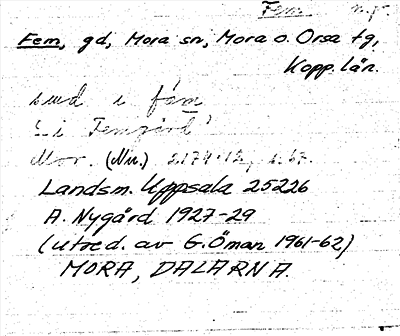 Fem n.r.
Fem, gd, Mora sn, Mora o. Orsa tg,
Kopp. län.
i fäm
i Femgård
Mor. (Nu.) 2174:12, s. 67.
Landsm. Uppsala 25226
A. Nygård 1927-29
(utred. av G. Öman 1961-62)
MORA, DALARNA.